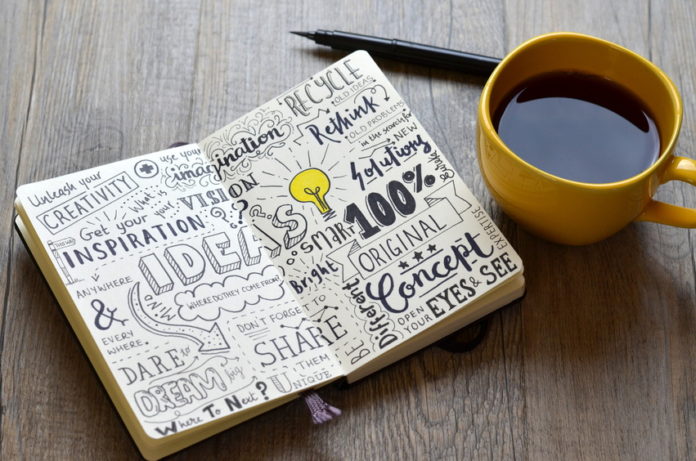 Unleash your
CREATIVITY
use your
imagination
imagination
what is your
VISION
Get your
INSPIRATION
IDEAS
ANYWHERE
&
EVERY
WHERE.
MIND
WHERE DO THEY COME FROM?
DARE to
DREAM big
Where To Next?
DON'T FORGET TO
SHARE
THEM
UNIQUE
RECYCLE
OLD IDEAS
Rethink
OLD PROBLEMS
in the search for
NEW
Solutions
smart
100%
ORIGINAL
Bright
Concept
EXPERTISE
BE Different
OPEN
YOUR
EYES & SEE